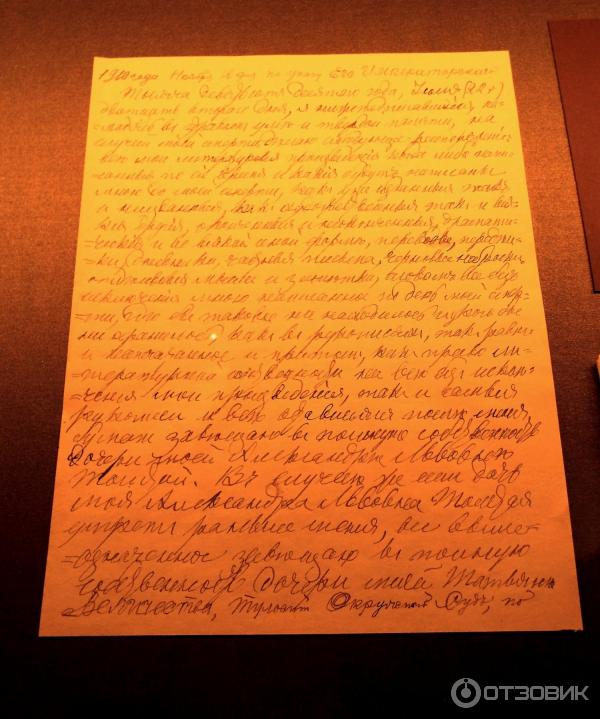 1910 года Ноября 16 дня по указу Его Императорскаго
Тысяча девятьсот десятого года, Июля (22)
двадцать второго дня, я нижеподписавшийся, на-
=ходясь в здравом уме и твердой памяти, на
случай моей смерти делаю следующее распоряжение:
все мои литературныя произведения когда либо напи-
санныя по сие время и какия будут написаны
мною до моей смерти, как уже изданныя так
и неизданныя, как художественныя так и вся-
кия другия, оконченныя и неоконченныя, драмати-
=ческия и во всякой иной форме, переводы, передел-
ки, дневники, частныя письма, черновые наброски,
отдельныя мысли и заметки, словом все без
исключения мною написанное по день моей смер-
ти, где бы таковое ни находилось и у кого бы
ни хранилось, как в рукописях, так равно
и напечатанное и притом, как право ли-
=тературной собственности на все без исклю-
=чения мои произведения, так и самыя
рукописи и все оставшияся после меня
бумаги завещаю в полную собственность
дочери моей Александре Львовне
Толстой. В случае же если дочь
моя Александра Львовна Толстая
умрет раньше меня, все выше-
=означенное завещаю в полную
собственность дочери моей Татьяне
Величества, Тульский Окружной Судъ, по
ОТЗОВИК